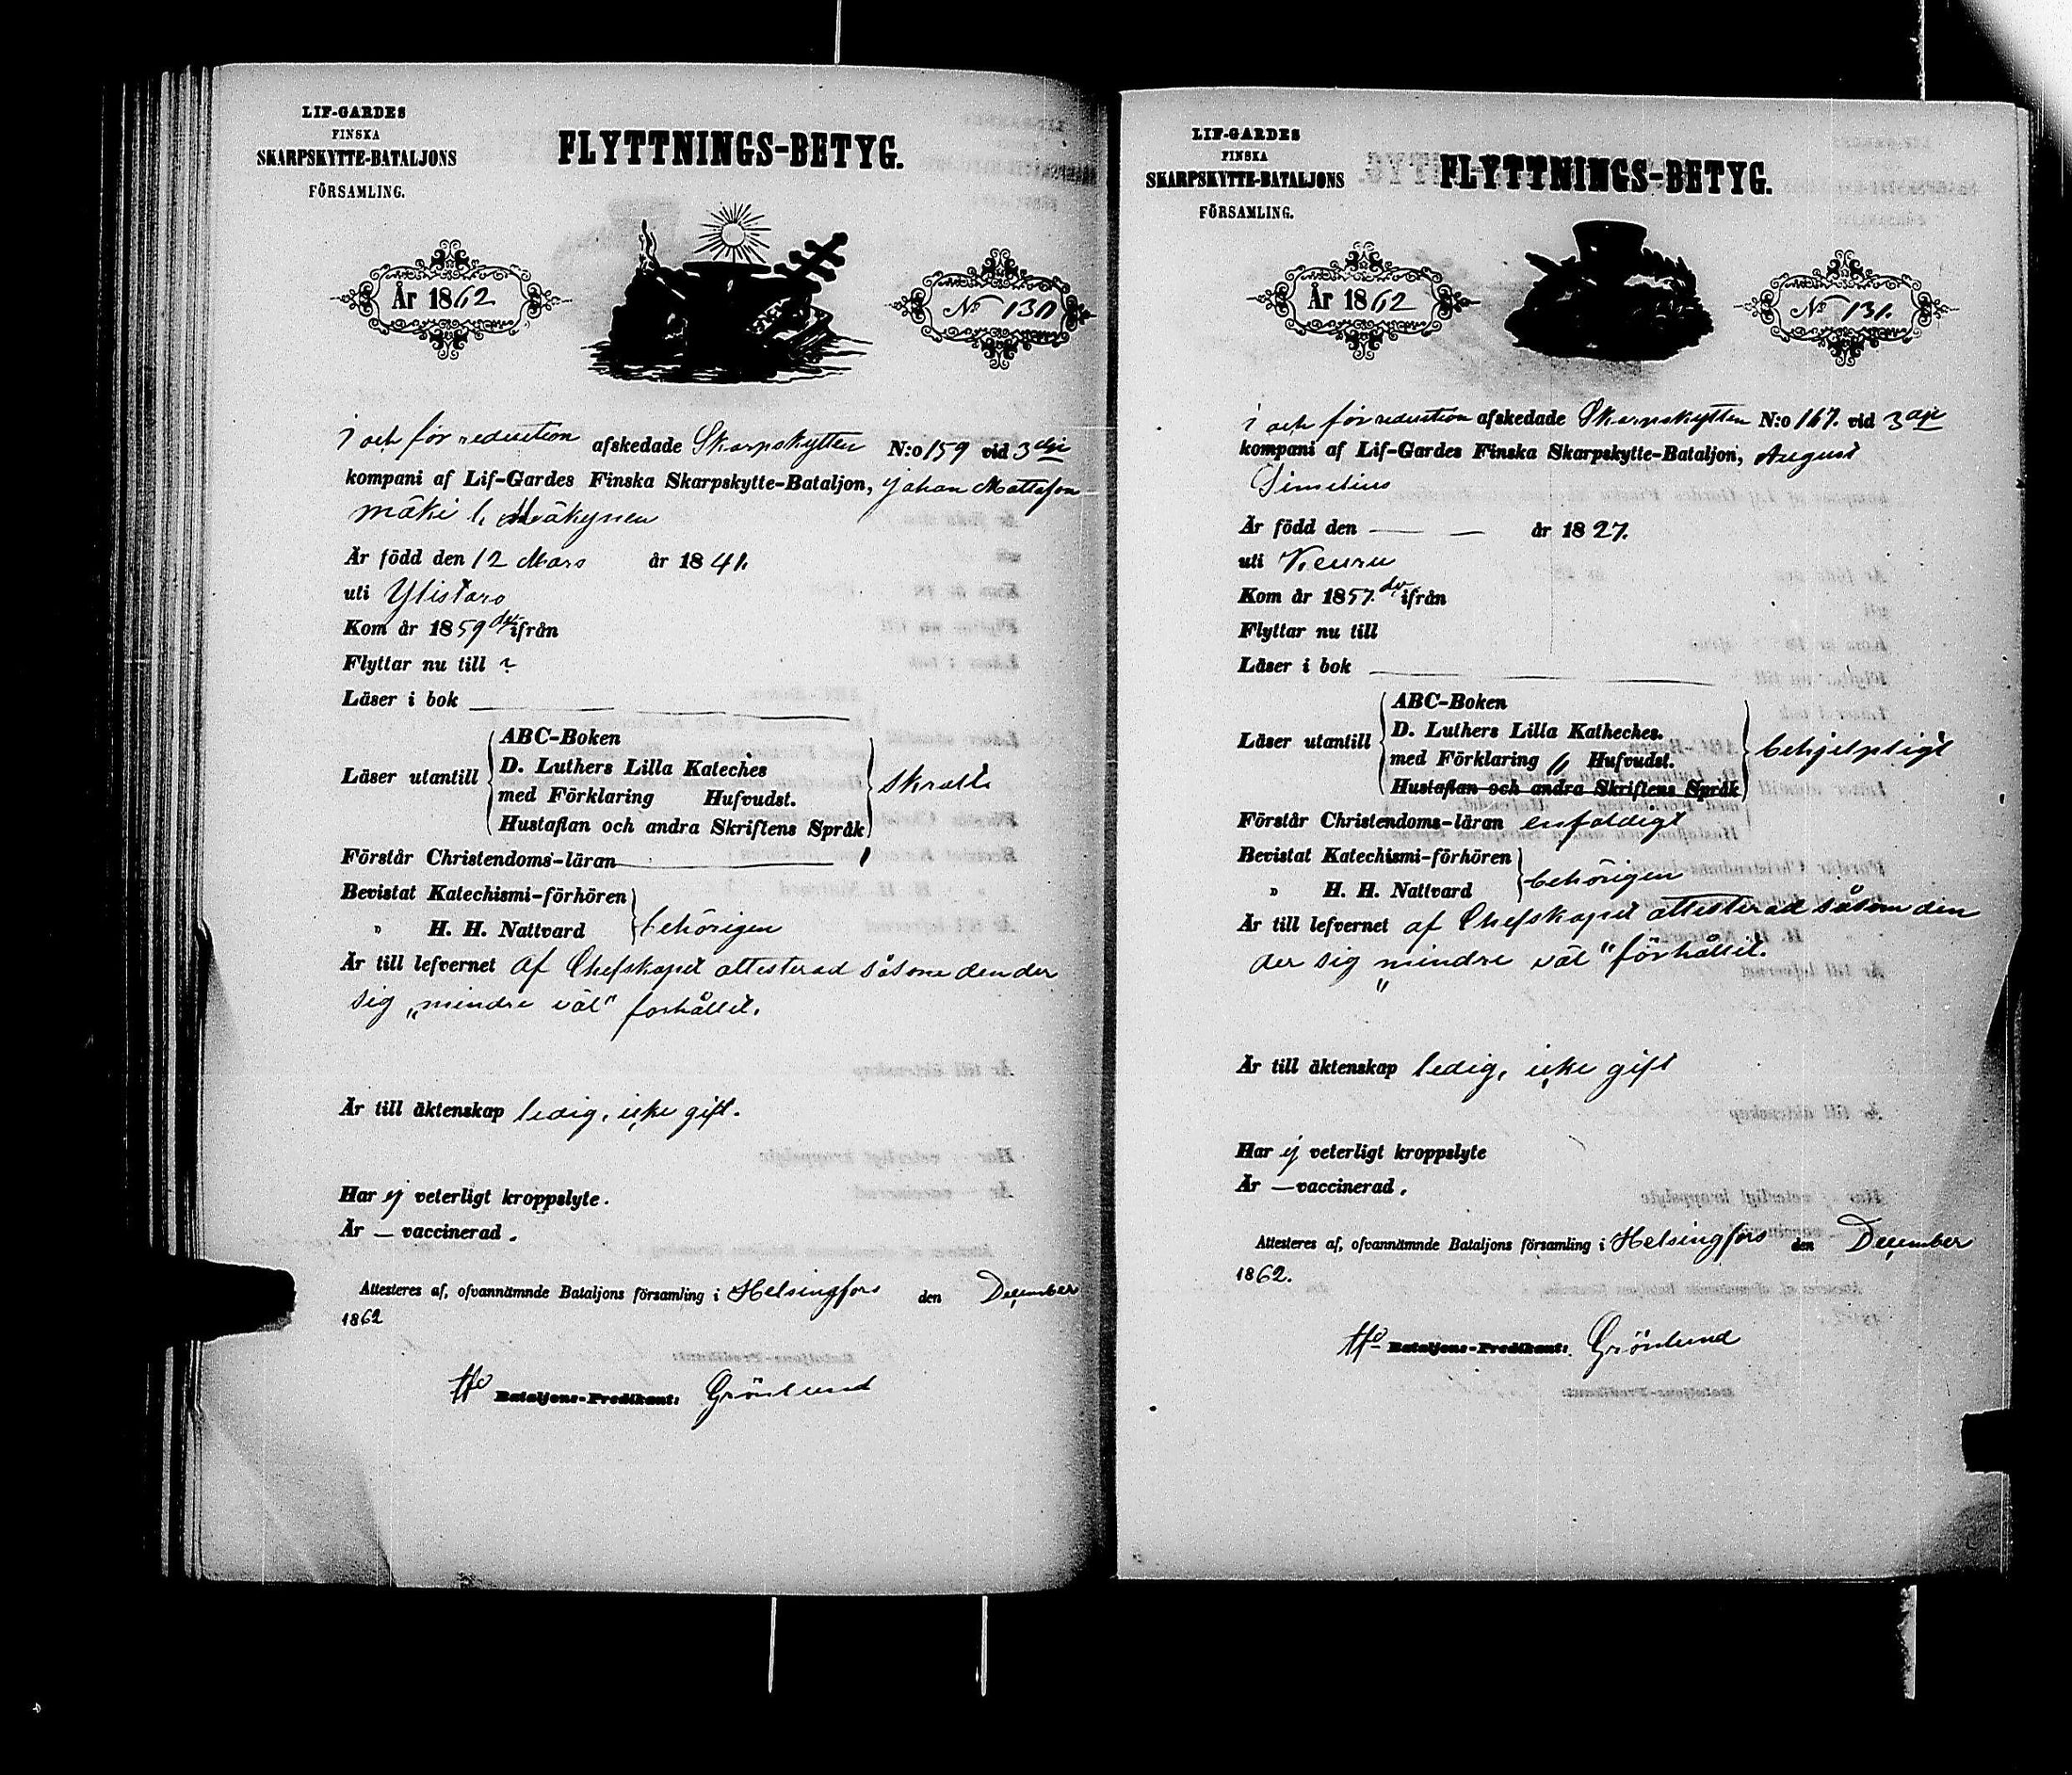 LIF-GARDES
FINSKA
SKARPSKYTTE-BATALJONS
FÖRSAMLING.
FLYTTNINGS-BETYG.
År 1862
No 130
I och för reduction afskedade Skarpskytten N:o 159 vid 3dje
kompani af Lif-Gardes Finska Skarpskytte-Bataljon, Johan
mäki
Är född den 12 Mars år 1841.
uti Ylistaro
Kom år 1859 ifrån
Flyttar nu till
Läser i bok
ABC-Boken
D. Luthers Lilla Kateches
Läser utantill
med Förklaring Hufvudst.
Hustaflan och andra Skriftens Språk
Förstår Christendoms-läran
Bevistat Katechismi-förhören
" H. H. Nattvard behörigen
Är till lefvernet af Chefskapet attesterad såsom den der
sig „mindre väl" förhållit.
Är till äktenskap ledig, icke gift.
Har ej veterligt kroppslyte.
Är — vaccinerad.
Attesteres af, ofvannämnde Bataljons församling i Helsingfors den December
1862
Bataljons-Predikant: Grönlund
LIF-GARDES
FINSKA
SKARPSKYTTE-BATALJONS
FÖRSAMLING.
FLYTTNINGS-BETYG.
År 1862
No 131.
I och för reduction afskedade Skarpskytten N:o 167. vid 3dje
kompani af Lif-Gardes Finska Skarpskytte-Bataljon, August
Simelius
Är född den — — år 1827.
uti Keuru
Kom år 1857. ifrån
Flyttar nu till
Läser i bok
ABC-Boken
D. Luthers Lilla Katheches.
Läser utantill behjelpligt
med Förklaring " Hufvudst.
Hustaflan och andra Skriftens Språk
Förstår Christendoms-läran enfaldigt
Bevistat Katechismi-förhören
" H. H. Nattvard behörigen
Är till lefvernet af Chefskapet attesterad såsom den
der sig „mindre väl" förhållit.
Är till äktenskap ledig, icke gift
Har ej veterligt kroppslyte
Är — vaccinerad.
Attesteres af, ofvannämnde Bataljons församling i Helsingfors den December
1862.
Bataljons-Predikant: Grönlund